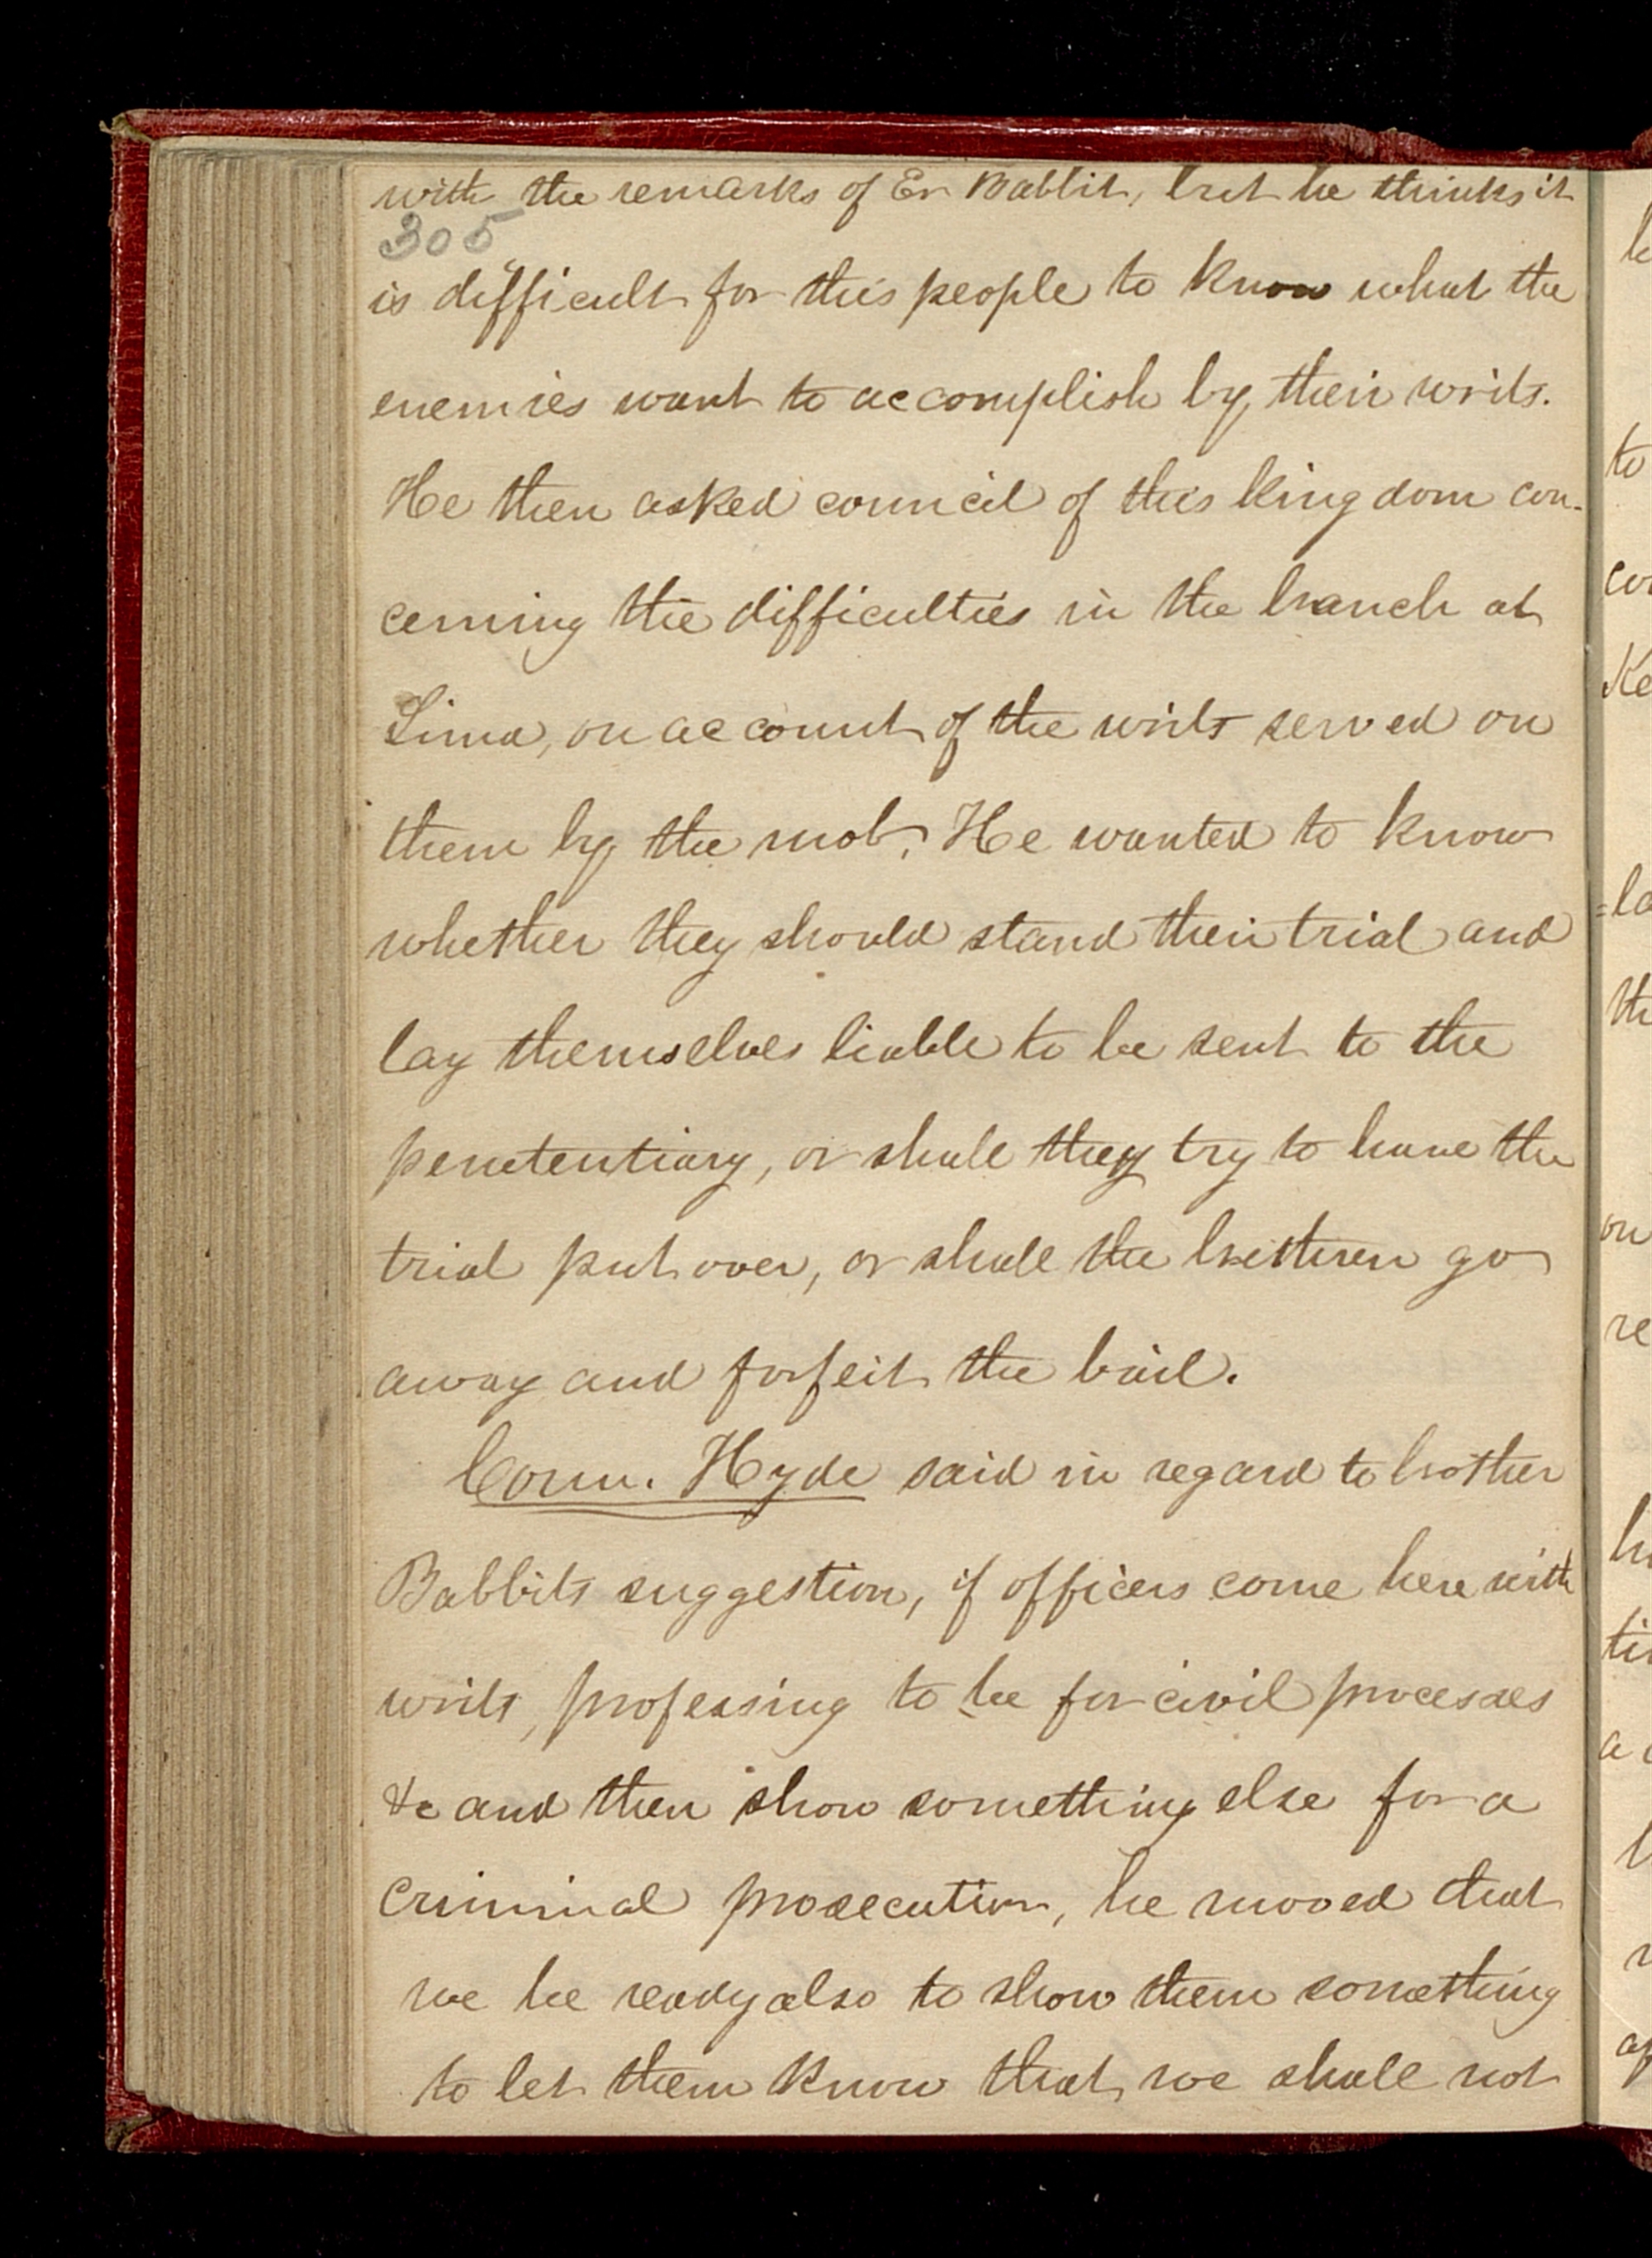 with the remarks of Er Babbit, but he thinks it
305
is difficult for this people to know what the
enemies want to accomplish by their writs.
He then asked council of this kingdom con-
cerning the difficulties in the branch at
Lima, on account of the writs served on
them by the mob. He wanted to know
whether they should stand their trial and
lay themselves liable to be sent to the
penetentiary, or shall they try to have the
trial put over, or shall the brethren go
away and forfeit the bail.
Coun. Hyde said in regard to brother
Babbits suggestion, if officers come here with
writs, professing to be for civil processes
&c and then show something else for a
criminal prosecution, he moved that
we be ready also to show them something
to let them know that we shall not